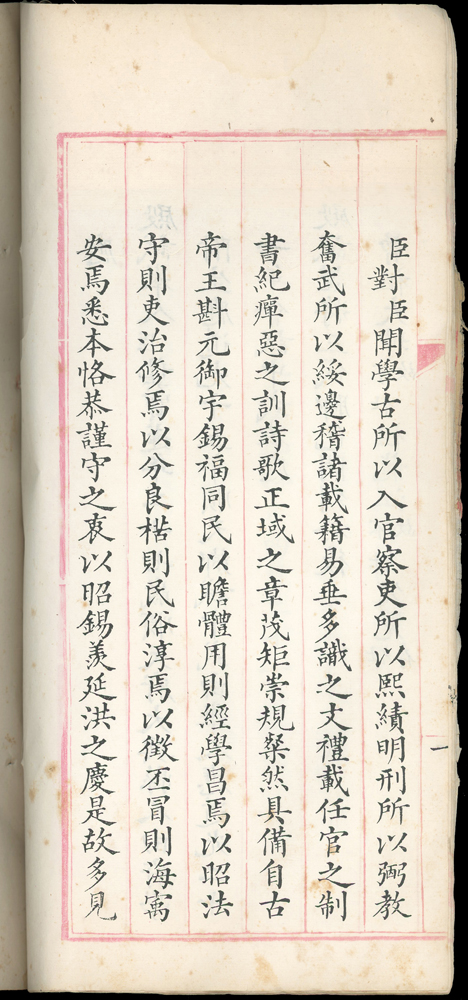 臣對臣聞學古所以入官察吏所以熙績明刑所以弼教
奮武所以綏邊稽諸載籍易垂多識之文禮載任官之制
書紀癉惡之訓詩歌正域之章茂矩崇規粲然具備自古
帝王斟元御宇錫福同民以瞻體用則經學昌焉以昭法
守則吏治修焉以分良楛則民俗淳焉以徵丕冒則海寓
安焉悉本恪恭謹守之衷以昭錫羨延洪之慶是故多見
一